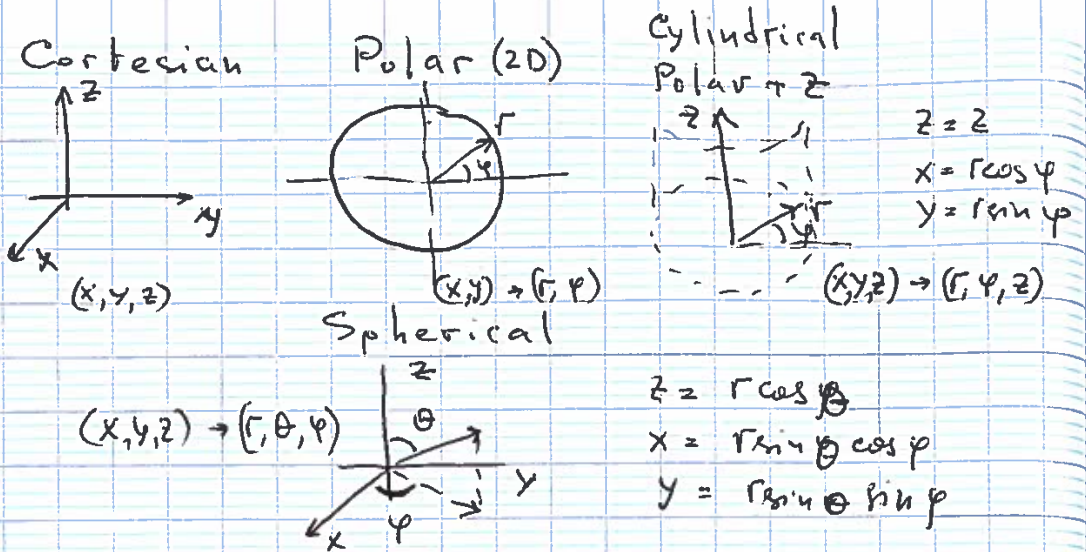 Cortesian
z
y
x
(x, y, z)
Polar (2D)
r
φ
(x,y) → (r, φ)
Cylindrical
Polar + z
z
r
φ
z = z
x = r cos φ
y = r sin φ
(x,y,z) → (r, φ, z)
Spherical
(x,y,z) → (r, θ, φ)
z
θ
y
φ
x
z = r cos θ
x = r sin θ cos φ
y = r sin θ sin φ